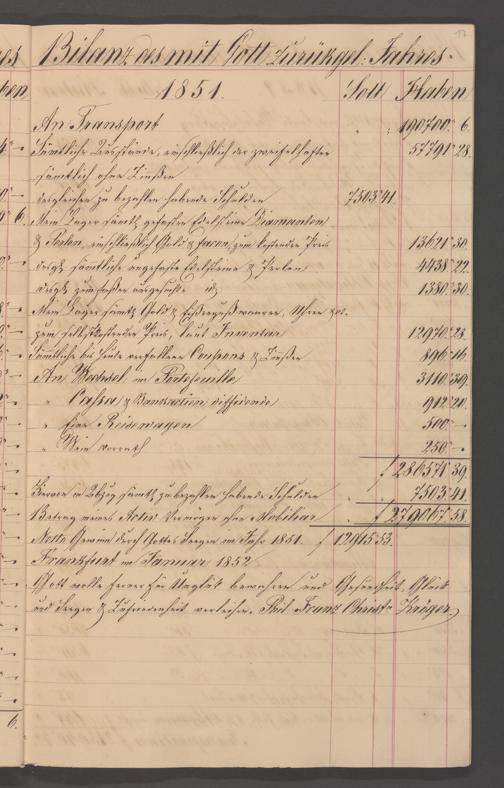 17
Bilanz des mit Gott zurükgel: Jahres.
1851. Soll Haben
An Transport 190700. 6.
Sämtliche Ausstände, einschließlich der zweifelhaften 57791. 28.
sämtlich ohne Zinsen
dergleichen zu bezahlen habende Schulden 7503. 41
Mein Lager sämtl. gefasster Edelsteine Diamanten
& Perlen, einschließlich Gold & façon, zum kostenden Preis 13621. 30.
dergl. sämtliche ungefasste Edelsteine & Perlen 4438. 22.
dergl. 1380. 30.
Mein Lager sämtl. Gold & Uhren
zum selbstkostenden Preis, laut Inventar 12970. 28.
Sämtliche bis heute verfallene Coupons & Zinsen 896. 16.
An Wechsel im Portefeuille 3110. 39.
" Cassa & Dividende 912. 20.
" Ein Reisewagen 500. –
" Wein vorrath 250. –
f 286571. 39.
Hievon in Abzug sämtl. zu bezahlen habende Schulden 7503. 41.
Betrag meines Activ Vermögen ohne Mobiliar f 279067. 58.
Netto Gewinn durch Gottes Seegen im Jahr 1851. f 12915. 53.
Frankfurt im Januar 1852
Gott wolle ferner für Unglük bewahren und Gesundheit, Glück
und Seegen & Zufriedenheit verleihen. Phil. Franz Christn Kröger